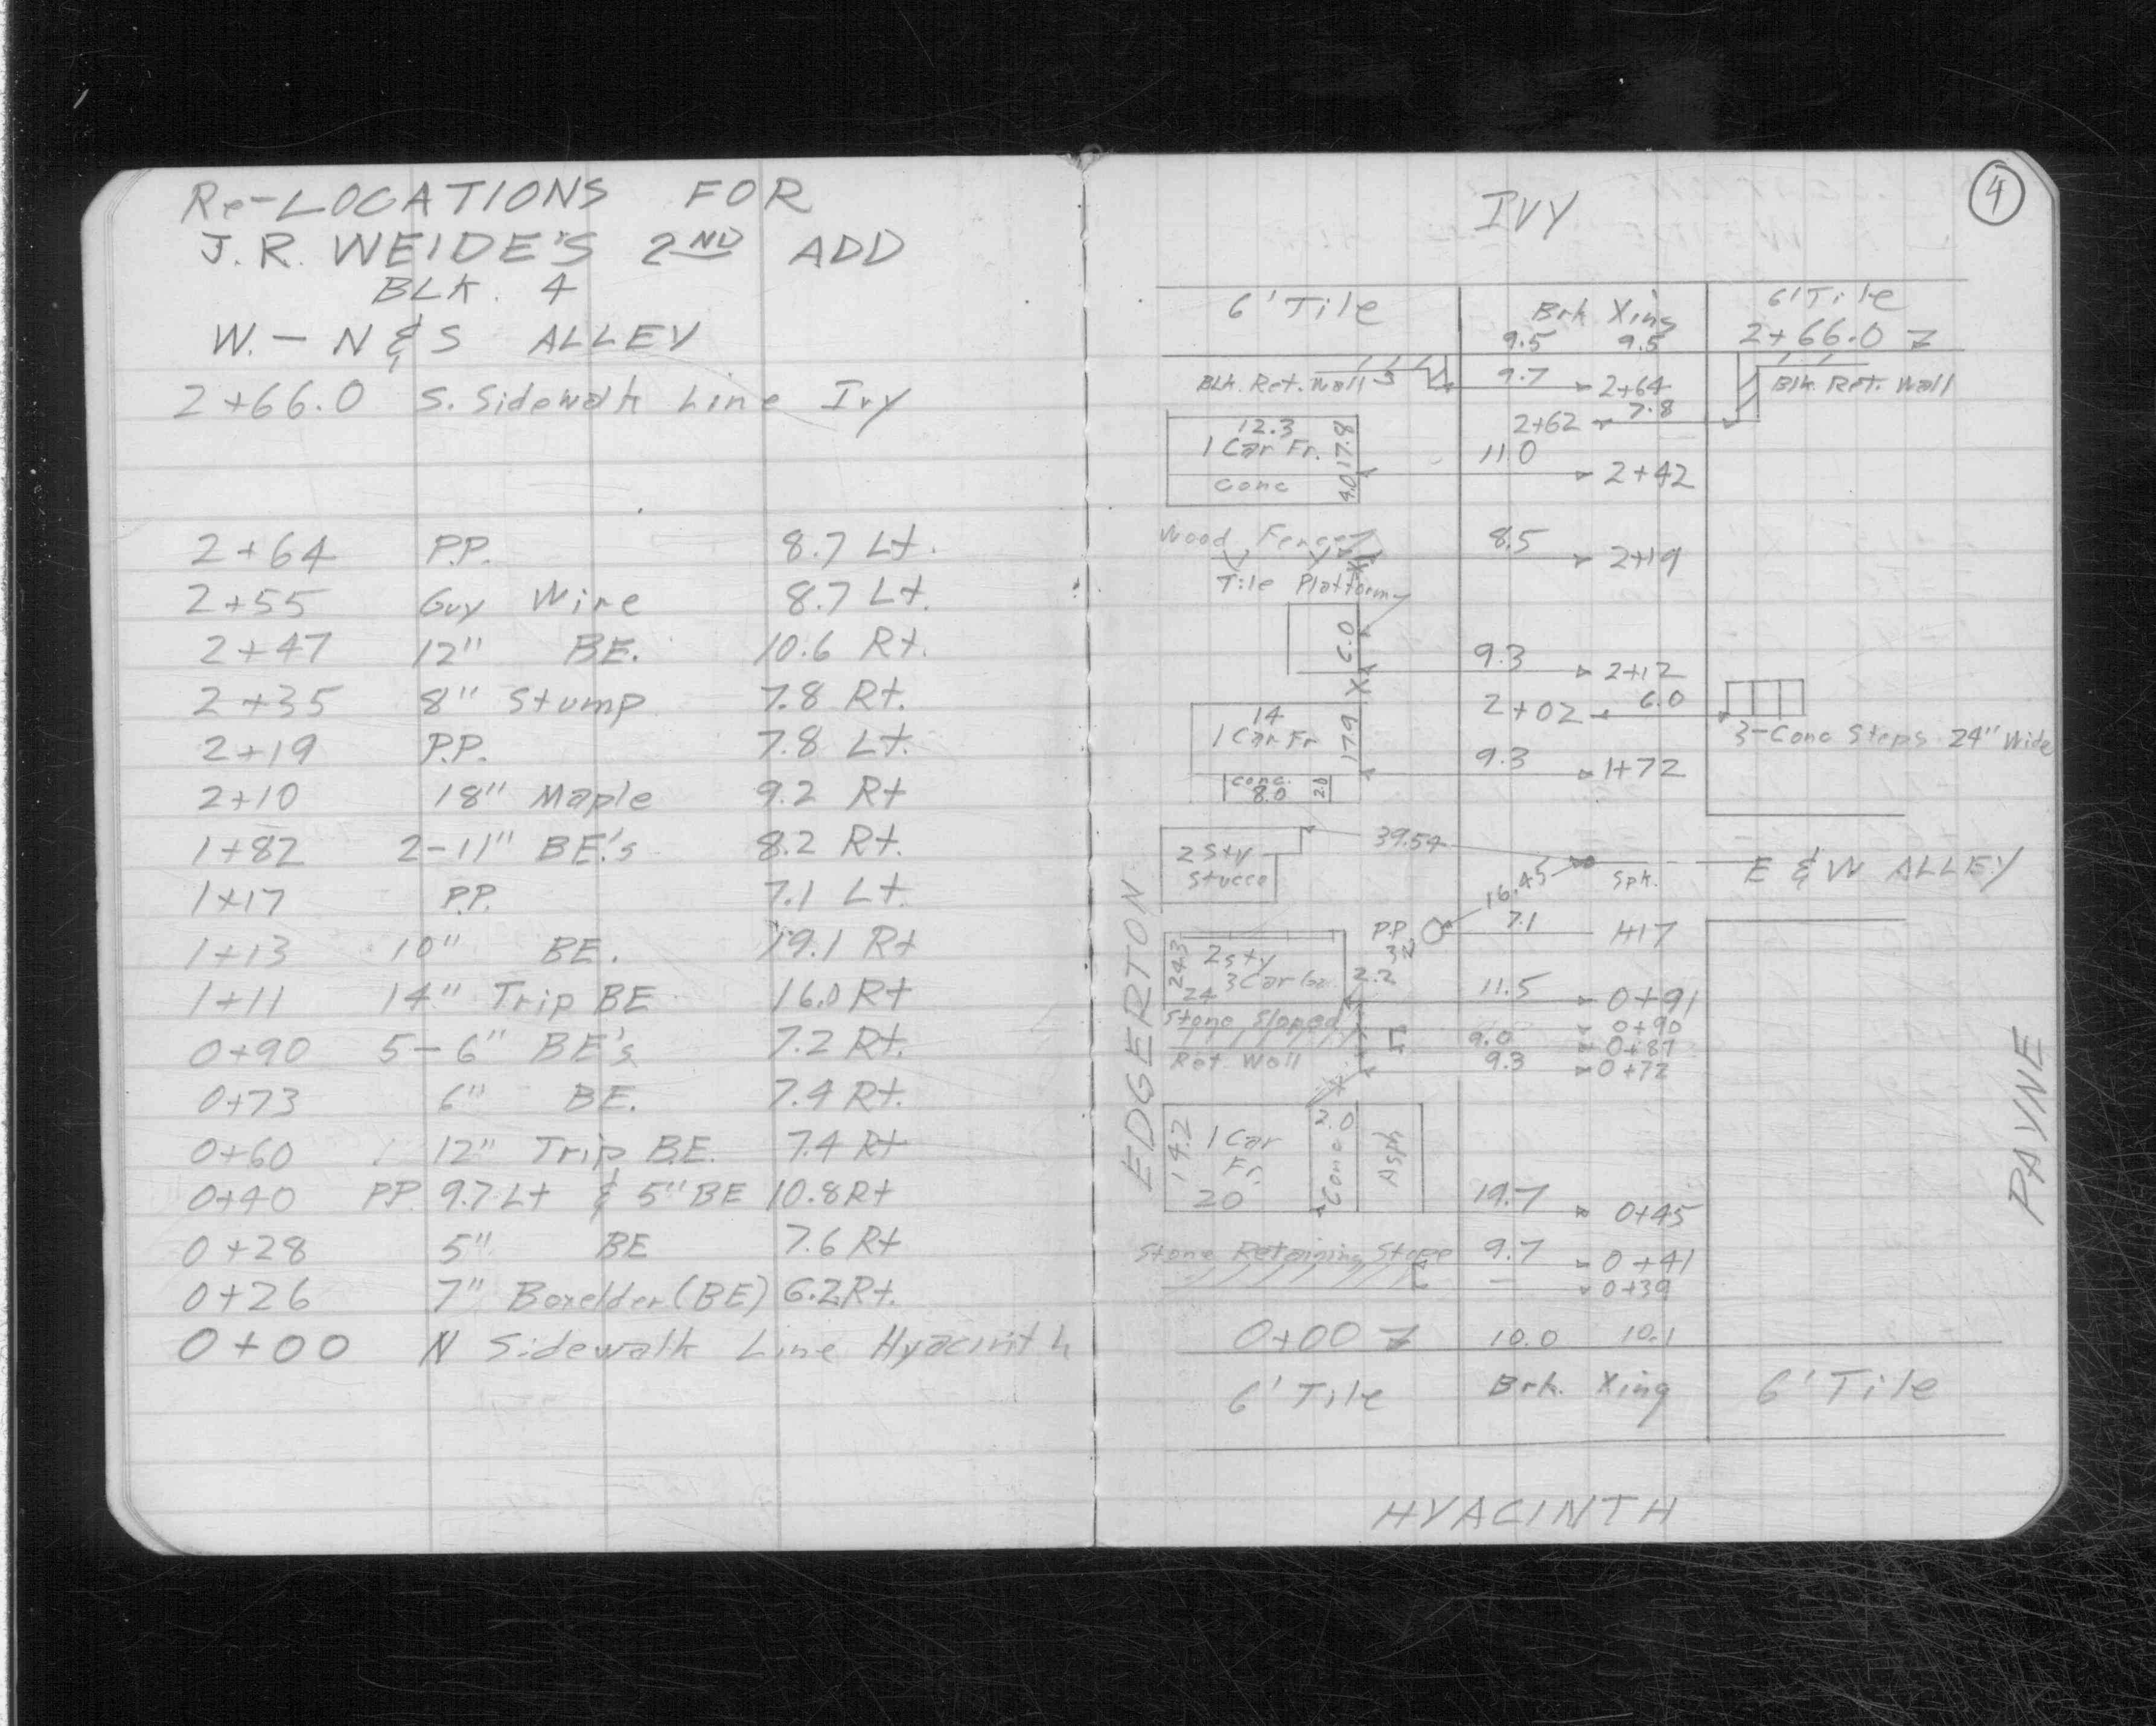 Re-LOCATIONS FOR
J.R. WEIDE'S 2ND ADD
BLK. 4
W. - N & S ALLEY
2+66.0 S. Sidewalk Line Ivy
2+64 P.P. 8.7 Lt.
2+55 Guy Wire 8.7 Lt.
2+47 12" BE. 10.6 Rt.
2+35 8" Stump 7.8 Rt.
2+19 P.P. 7.8 Lt.
2+10 18" Maple 9.2 Rt
1+82 2-11" BE.'s 8.2 Rt.
1+17 P.P. 7.1 Lt.
1+13 10" BE. 19.1 Rt
1+11 14" Trip BE 16.0 Rt
0+90 5-6" BE's 7.2 Rt.
0+73 6" BE. 7.4 Rt.
0+60 12" Trip B.E. 7.4 Rt
0+40 PP. 9.7 Lt & 5" BE 10.8 Rt
0+28 5" BE 7.6 Rt
0+26 7" Boxelder (BE) 6.2 Rt.
0+00 N Sidewalk Line Hyacinth
4
IVY
6' Tile Brk Xing 6' Tile
9.5 9.5 2+66.0
BLK. Ret. Wall 9.7 2+64 Blk. Ret. Wall
2+62 7.8
12.3
1 Car Fr. 17.8 11.0
conc 4.0 2+42
Wood Fence 8.5 2+19
Tile Platform
6.0 9.3 2+12
2+02 6.0
3-Conc Steps 24" Wide
14
1 Car Fr 17.9 9.3 1+72
conc.
8.0 2.0
39.54
2 sty
Stucco
16.45 Spk. E & W ALLEY
EDGERTON
P.P. 7.1 1+17
24.3 2 sty
24 3 Car Ga. 2.2 11.5 0+91
Stone Sloped 0+90
Ret. Wall 9.0 0+87
9.3 0+72
PAYNE
14.2 1 Car
Fr.
20 2.0 Conc Asph
19.7 0+45
Stone Retaining Slope 9.7 0+41
0+39
0+00 10.0 10.1
6' Tile Brk. Xing 6' Tile
HYACINTH